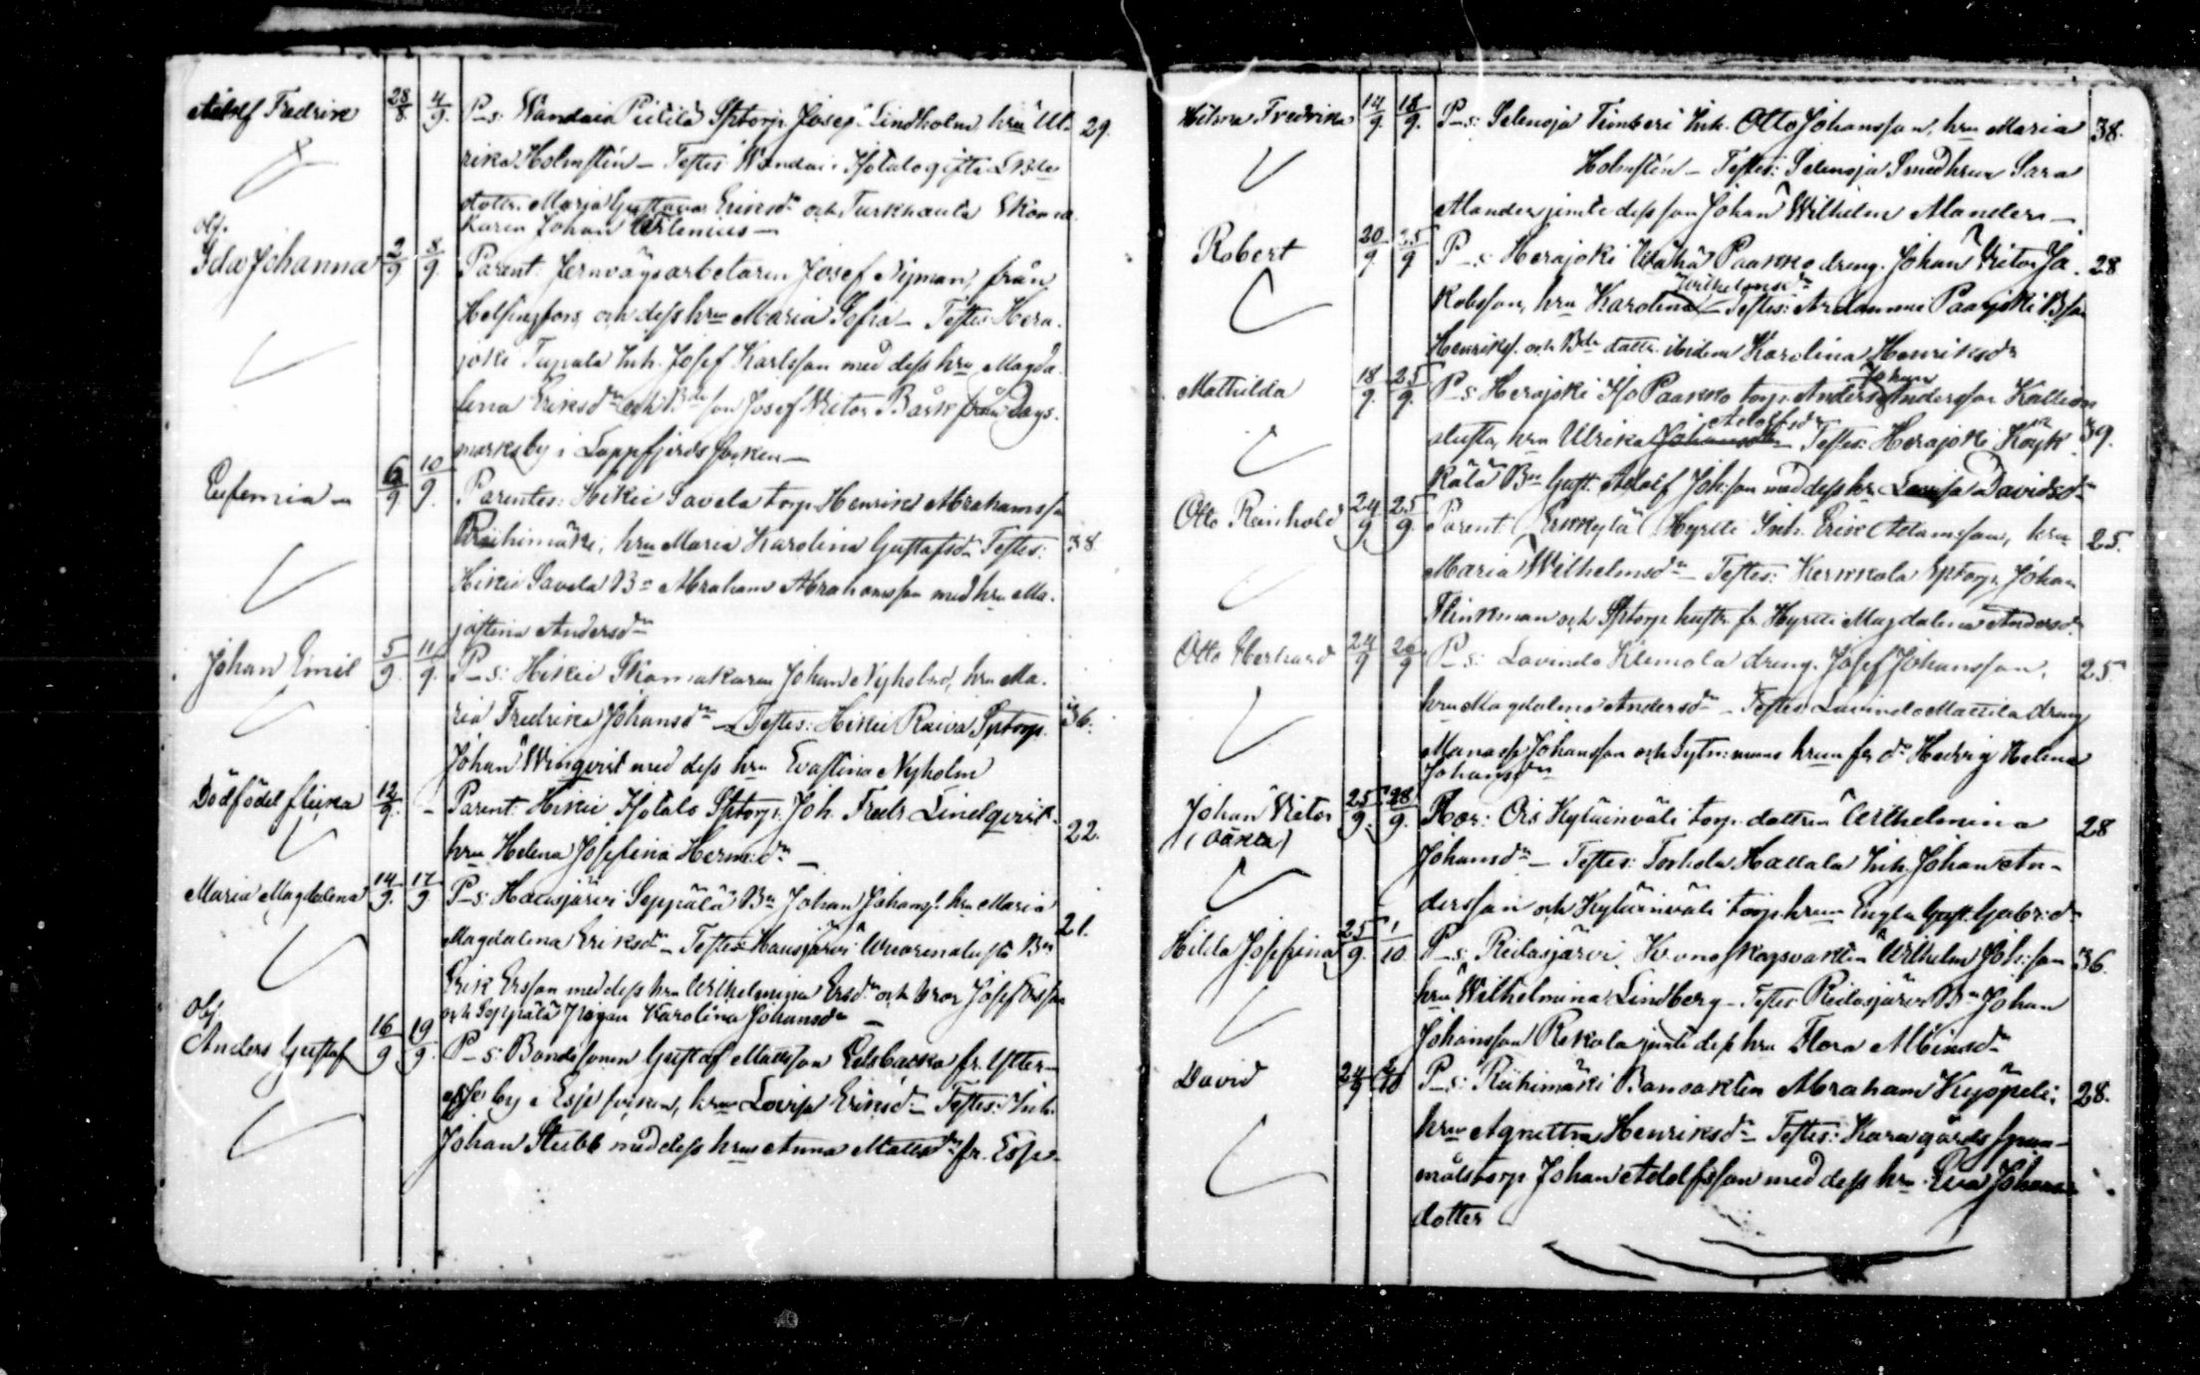 Adolf Fredrik 28/8 4/9 P_s: Wandaia Piilila Sptorp. Josef Lindholm, hru Ul- 29.
rika Holmstén — Testes Wandai Isotalo gifta
dottr. Maria Gustava Eriksdr och Turkhauta Skoma-
karen Johan
Olj.
Ida Johanna 2/9 8/9 Parent: Jernvägsarbetaren Josef Nyman, från
Helsingfors och dess hru Maria Sofia — Testes: Hera-
joki Tupala Inh. Josef Karlsson med dess hru Magda-
lena Eriksdr och Bde son Josef Victor Bärk från Dags-
marks by i Lappfjärds socken —
Eufemia — 6/9 10/9 Parentes: Hikiä Savela torp. Henrik Abrahamsson
Riihimäki, hru Maria Karolina Gustafsdr Testes: 38
Hikiä Savela Bn Abraham Abrahamsson med hru Ma-
jastina Andersdr
Johan Emil 5/9 11/9 P_s: Hikiä Skomakaren Johan Nyholm, hru Ma-
ria Fredrika Johansdr — Testes: Hikiä Raiva Sptorp. 36.
Johan Winqvist med dess hru Evastina Nyholm
Dödfödd flicka 12/9 - Parent. Hikiä Isotalo Sptorp. Joh. Fredr. Lindqvist 22.
hru Helena Josefina Herm:dr —
Maria Magdalena 14/9 17/9 P_s: Hausjärvi Seppälä Bn Johan Johans. hru Maria 21.
Magdalena Eriksdr — Testes Hausjärvi Wuorenalusta Bn
Erik Ersson med dess hru Wilhelmina Ersdr och bror Josef Ersson
och Seppälä pigan Karolina Johansdr —
Olj.
Anders Gustaf 16/9 19/9 P_s: Bondesonen Gustaf Mattsson Edsbacka fr. Ytter-
esse by i Esse socken, hru Lovisa Eriksdr — Testes: Inh.
Johan Stubb med dess hru Anna Mattsdr fr. Esse —
Hilma Fredrika 14/9 18/9 P_s: Selenoja Timberi Inh. Otto Johansson, hru Maria 38.
Holmstén — Testes: Selenoja Smedhrun Sara
Mander jemte dess son Johan Wilhelm Mander —
Robert 20/9 25/9 P_s: Herajoki Wähä Paakko dreng. Johan Victor Ja- 28
Wilhelmsdr
kobsson, hru Karolina — Testes: Bson
Henriks. och Bde dottr. ibidem Karolina Henriksdr
Mathilda 18/9 25/9 P_s: Herajoki Iso Paakko torp. Anders Johan Andersson Kallion
Adolfsdr
alusta, hru Ulrika Johansdr — Testes: Herajoki Köyk- 39.
kälä Bn Gust. Adolf Joh:son med dess hr. Lovisa Davidsdr
Otto Reinhold 24/9 25/9 Parent: Erkkylä Hyrsti Inh. Erik Adamsson, hru 25.
Maria Wilhelmsdr — Testes: Kerkkola Sptorp. Johan
Flinkman och Sptorp hustr. fr. Hyrsti Magdalena Andersdr.
Otto Eberhard 24/9 26/9 P_s: Lavindo Klemola dreng. Josef Johansson, 25
hru Magdalena Andersdr — Testes Lavindo Mattila dreng
Manasse Johansson och Sytn:mans hrun fr do Hedvig Helena
Johansdr
Johan Victor 25/9 28/9 Mor: Ois Kyläinväli torp. dottren Wilhelmina 28
(oäkta)
Johansdr — Testes: Torhola Hallala Inh. Johan An-
dersson och Kyläinväli torp. hrun Engla Gust. Gabr:dr
Hilda Josefina 25/9 1/10 P_s: Ridasjärvi Kronoskogsvakten Wilhelm Joh:son 36.
hru Wilhelmina Lindberg — Testes Ridasjärvi Bn Johan
Johansson Rekola jemte dess hru Flora Albinsdr
David 24/9 2/10 P_s: Riihimäki Banvakten Abraham Kyöpeli, 28.
hru Agnetha Henriksdr — Testes: Karagårds span-
målstorp. Johan Adolfsson med dess hru Eva Johans-
dotter